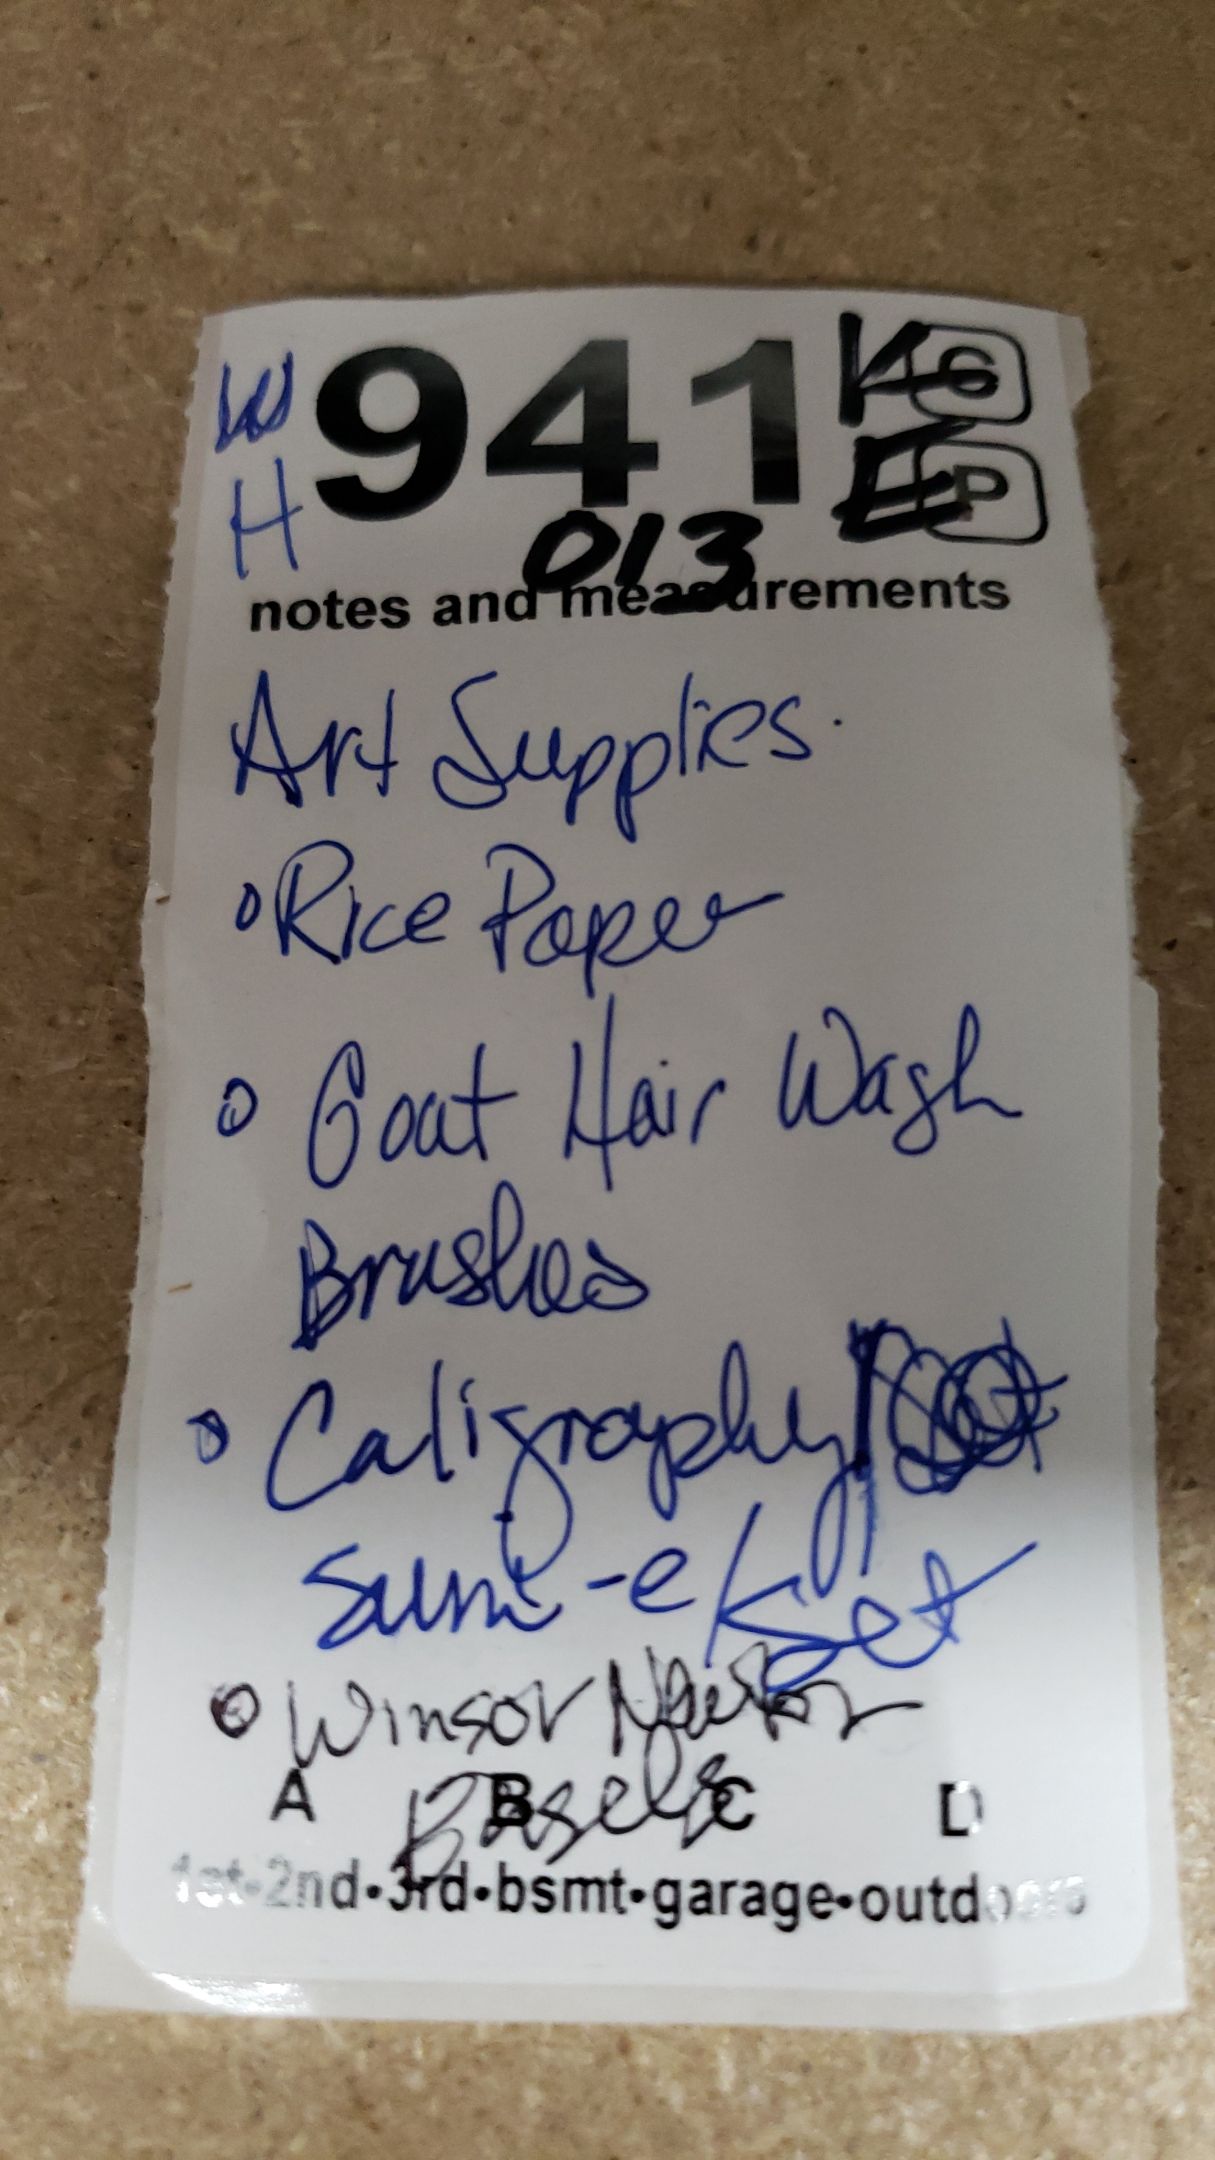 W 941 K S
H E P
013
notes and measurements
Art Supplies.
Rice Paper
Goat Hair Wash
Brushes
Caligraphy
Sumi-e / Set
Winsor Newton
A B C D
1st•2nd•3rd•bsmt•garage•outdoors